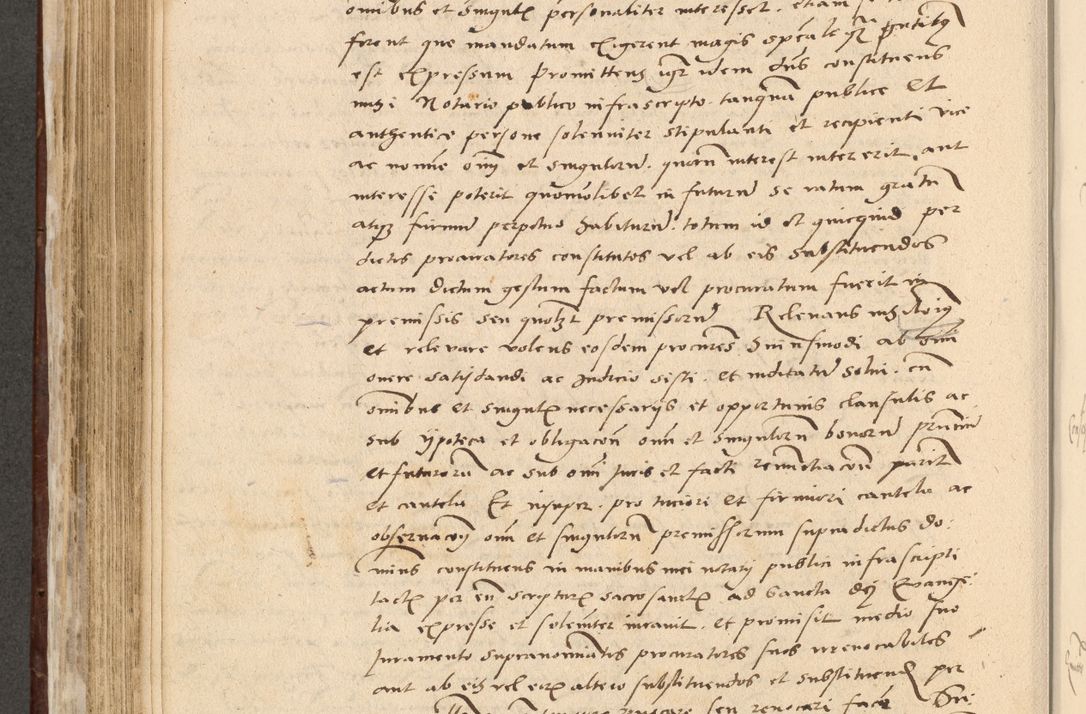 omnibus et singulis personaliter interesset. etiam
forent que mandatum exigerent magis speciale qz pntibus
est expressum Promittens igr idem dns constituens
mihi Notario publico infrascripto. tanquam publice et
authentice persone solenniter stipulanti et recipienti vice
ac nomine oim et singulorum. quorum interest intererit, aut
interesse poterit quomolibet in futurum se ratum gratum
atqz firmum perpetuo habiturum. totum id et quicquid per
dictos procuratores constitutos vel ab eis substituendos
actum dictum gestum factum vel procuratum fuerit in
premissis seu quolzt premissorum Relevans
et relevare volens eosdem procures huiusmodi ab omi
onere satisdandi ac iudicio sisti. et iudicatum solvi. cum
omnibus et singulis necessariis et opportunis clausulis ac
sub ypoteca et obligacon oim et singulorum bonorum pntium
et futurorum ac sub omi iuris et facti renunciacon pariter
et cautela Et insuper. pro tuciori et firmiori cautela ac
observacon oim et singulorum premissorum supradictus do:
minus constituens in manibus mei notarii publici infrascripti
tactis per eum scripturis sacrosanctis ad sancta dei Evange:
lia expresse et solenniter iuravit. et promisit medio suo
Juramento supranominatos procuratores suos irrevocabiles
aut ab eis vel eorum altero substituendos et substituend per
revocare seu revocari facere